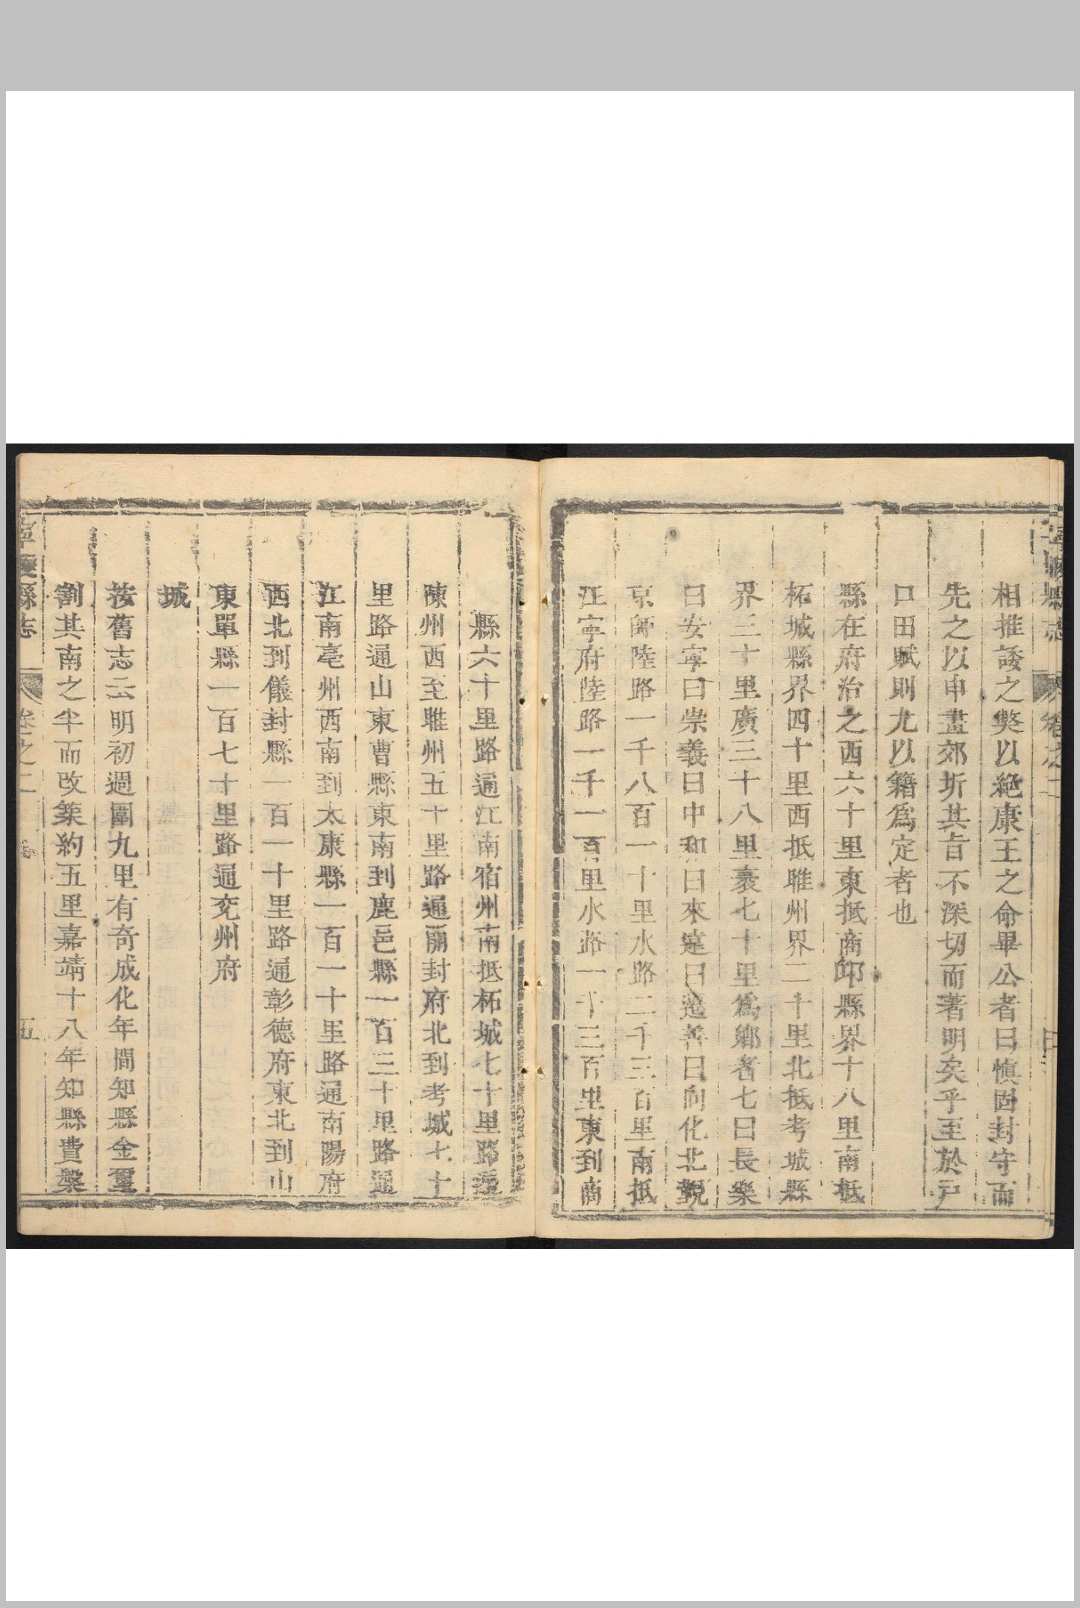 寧陵縣志 卷之二
相推諉之獘以絶康王之命畢公者曰愼固封守而
先之以申畫郊圻其旨不深切而著明矣乎至於戸
口田賦則尤以籍爲定者也
縣在府治之西六十里東抵商邱縣界十八里南抵
柘城縣界四十里西抵睢州界二十里北抵考城縣
界三十里廣三十八里袤七十里爲鄉者七曰長樂
曰安寧曰崇義曰中和曰來遠曰遷善曰向化北覲
京師陸路一千八百一十里水路二千三百里南抵
江寧府陸路一千一百里水路一千三百里東到商
縣六十里路通江南宿州南抵柘城七十里路通
陳州西至睢州五十里路通開封府北到考城七十
里路通山東曹縣東南到鹿邑縣一百三十里路通
江南亳州西南到太康縣一百一十里路通南陽府
西北到儀封縣一百一十里路通彰德府東北到山
東單縣一百七十里路通兗州府
城
按舊志云明初週圍九里有奇成化年間知縣金璽
割其南之半而改築約五里嘉靖十八年知縣費槃
寧陵縣志 卷之二 五